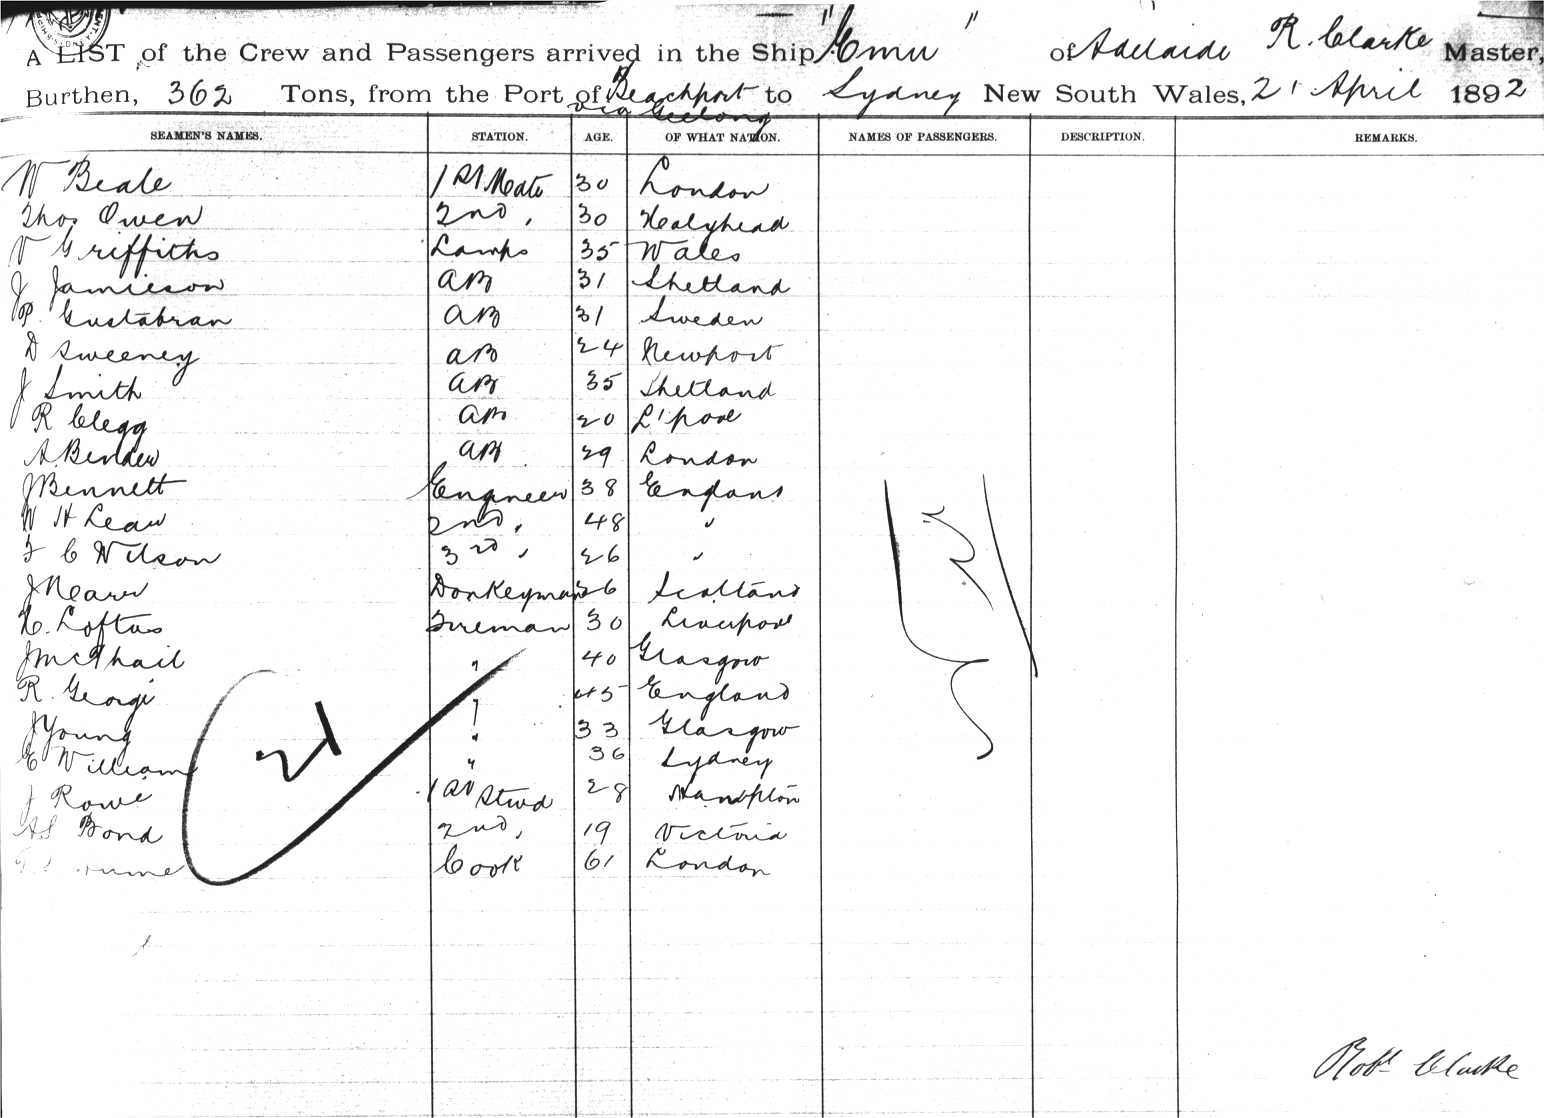 A LIST of the Crew and Passengers arrived in the Ship "Emu" of Adelaide R. Clarke Master,
Burthen, 362 Tons, from the Port of Beachport to Sydney New South Wales, 21 April 1892
via Geelong
SEAMEN'S NAMES. STATION. AGE. OF WHAT NATION. NAMES OF PASSENGERS. DESCRIPTION. REMARKS.
W Beale 1st Mate 30 London
Thos Owen 2nd " 30 Healyhead
V Griffiths Lamps 35 Wales
J Jamieson AB 31 Shetland
P. Gustabran AB 31 Sweden
D Sweeney AB 24 Newport
J Smith AB 35 Shetland
R Clegg AB 20 L'pool
A. Bender AB 29 London
J Bennett Engineer 38 England
W H Lean 2nd " 48 "
F C Wilson 3rd " 26 "
J Nearn Donkeyman 26 Scotland
H. Loftus Fireman 30 Liverpool
J McPhail " 40 Glasgow
R. George " 45 England
J Young " 33 Glasgow
E Williams " 36 Sydney
J Rowe 1st Stwd 28 Hampton
AS Bond 2nd " 19 Victoria
Cook 61 London
21
Nil
Robt Clarke